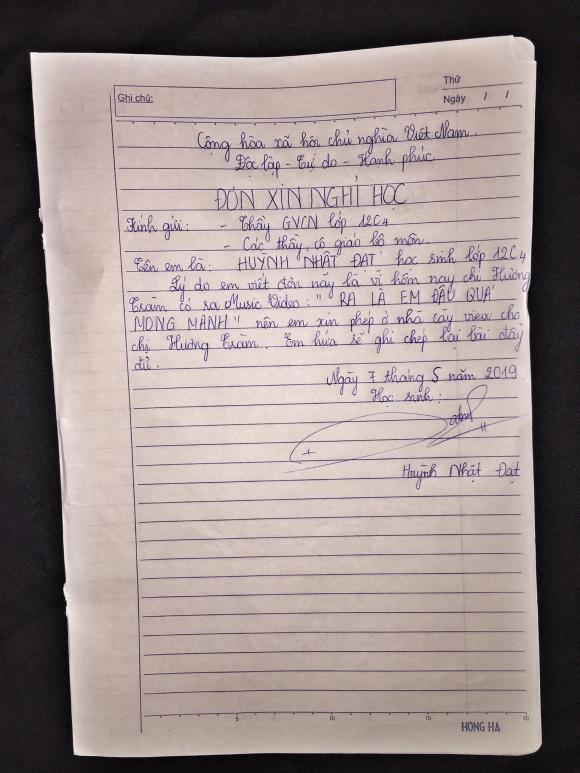 Thứ
Ghi chú:
Ngày / /
Cộng hòa xã hội chủ nghĩa Việt Nam.
Độc lập - Tự do - Hạnh phúc
ĐƠN XIN NGHỈ HỌC
Kính gửi: - Thầy GVCN lớp 12C4
- Các thầy, cô giáo bộ môn.
Tên em là: HUỲNH NHẬT ĐẠT học sinh lớp 12C4
Lý do em viết đơn này là vì hôm nay chị Hương
Tràm có ra Music Video: " RA LÀ EM ĐÂU QUÁ
MONG MANH" nên em xin phép ở nhà cày view cho
chị Hương Tràm. Em hứa sẽ ghi chép lại bài đầy
đủ.
Ngày 7 tháng 5 năm 2019
Học sinh:
Huỳnh Nhật Đạt
5 10 15 20
HONG HA